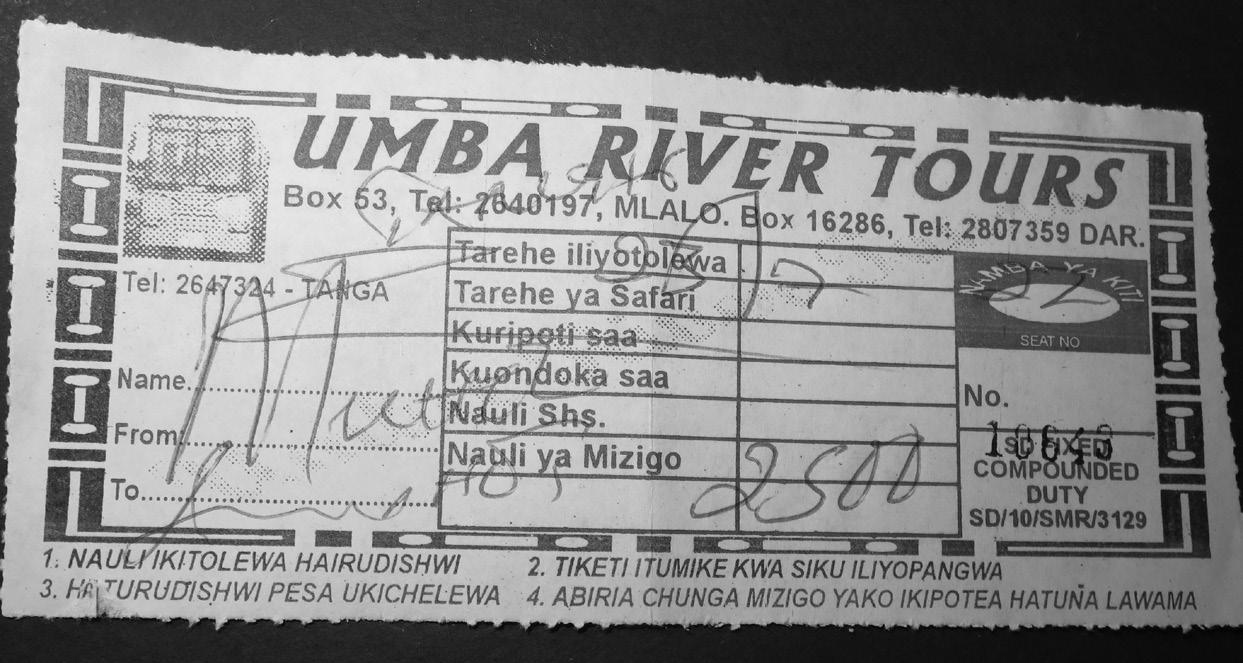 UMBA RIVER TOURS
Box 53, Tel: 2640197, MLALO. Box 16286, Tel: 2807359 DAR.
Tel: 2647324 - TANGA
Tarehe iliyotolewa
Tarehe ya Safari
Kuripoti saa
Kuondoka saa
Nauli Shs.
Nauli ya Mizigo
2500
NAMBA YA KITI
22
SEAT NO
Name
From
To
No.
SD FIXED
COMPOUNDED
DUTY
SD/10/SMR/3129
1. NAULI IKITOLEWA HAIRUDISHWI 2. TIKETI ITUMIKE KWA SIKU ILIYOPANGWA
3. HATURUDISHWI PESA UKICHELEWA 4. ABIRIA CHUNGA MIZIGO YAKO IKIPOTEA HATUNA LAWAMA